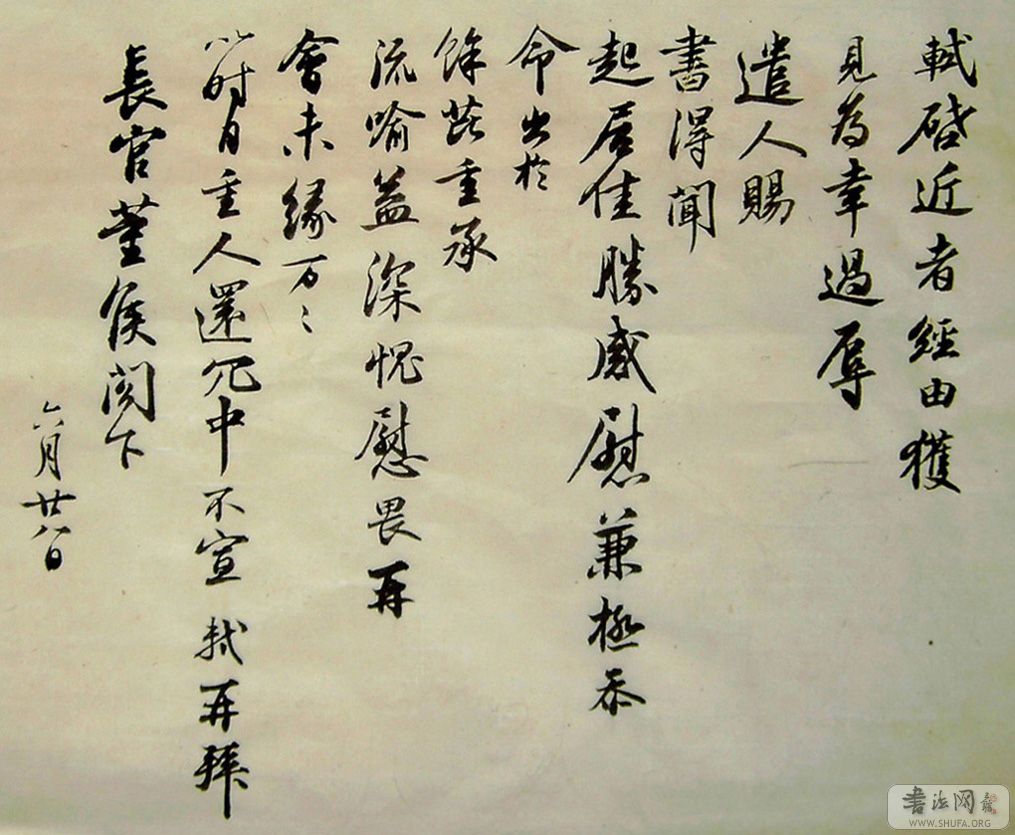 軾啓近者經由獲
見為幸過辱
遣人賜
書得聞
起居佳勝感慰兼極忝
命出於
餘芘重承
流喻益深愧慰畏再
會未緣万〻
以时自重人還冗中不宣 軾再拜
長官董侯閣下
六月廿八日
書法网
WWW.SHUFA.ORG